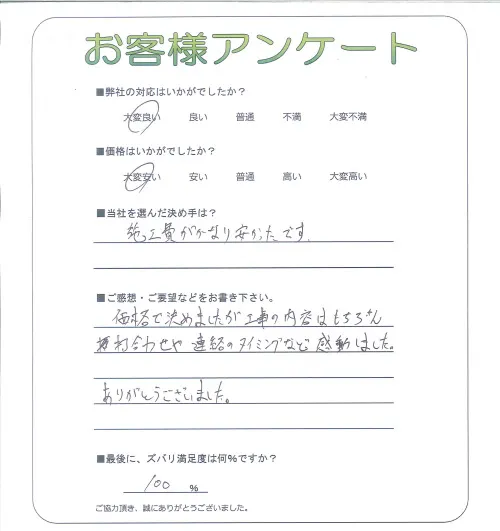 お客様アンケート
■弊社の対応はいかがでしたか？
大変良い 良い 普通 不満 大変不満
■価格はいかがでしたか？
大変安い 安い 普通 高い 大変高い
■当社を選んだ決め手は？
施工費がかなり安かったです。
■ご感想・ご要望などをお書き下さい。
価格で決めましたが工事の内容はもちろん
打ち合わせや連絡のタイミングなど感動しました。
ありがとうございました。
■最後に、ズバリ満足度は何％ですか？
100 %
ご協力頂き、誠にありがとうございました。